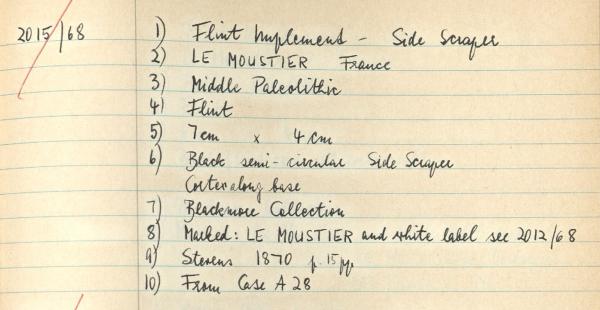 2015/68
1) Flint Implement - Side Scraper
2) LE MOUSTIER France
3) Middle Paleolithic
4) Flint
5) 7cm x 4cm
6) Black semi-circular Side Scraper
Cortex along base
7) Blackmore Collection
8) Marked: LE MOUSTIER and white label see 2012/68
9) Stevens 1870 p. 15pp.
10) From Case A 28